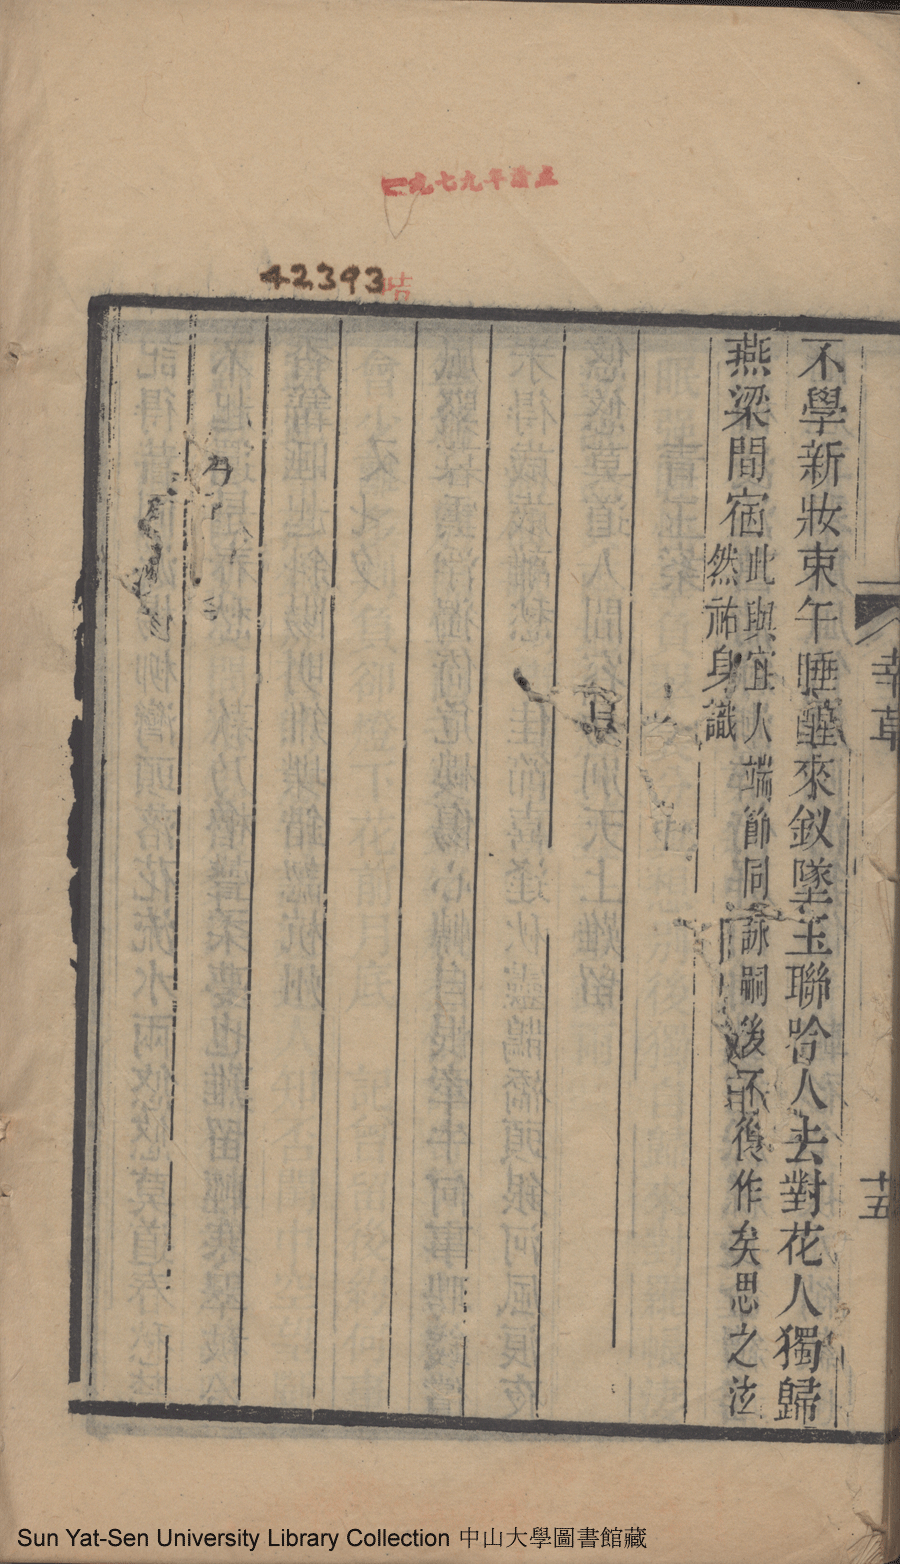 一九七九年清点
42393
不學新妝束午睡醒來釵墜玉聯哈人去對花人獨歸
燕梁間宿此與宜人端節同詠嗣後不復作矣思之泫
然祐身識
草
十五
Sun Yat-Sen University Library Collection 中山大學圖書館藏